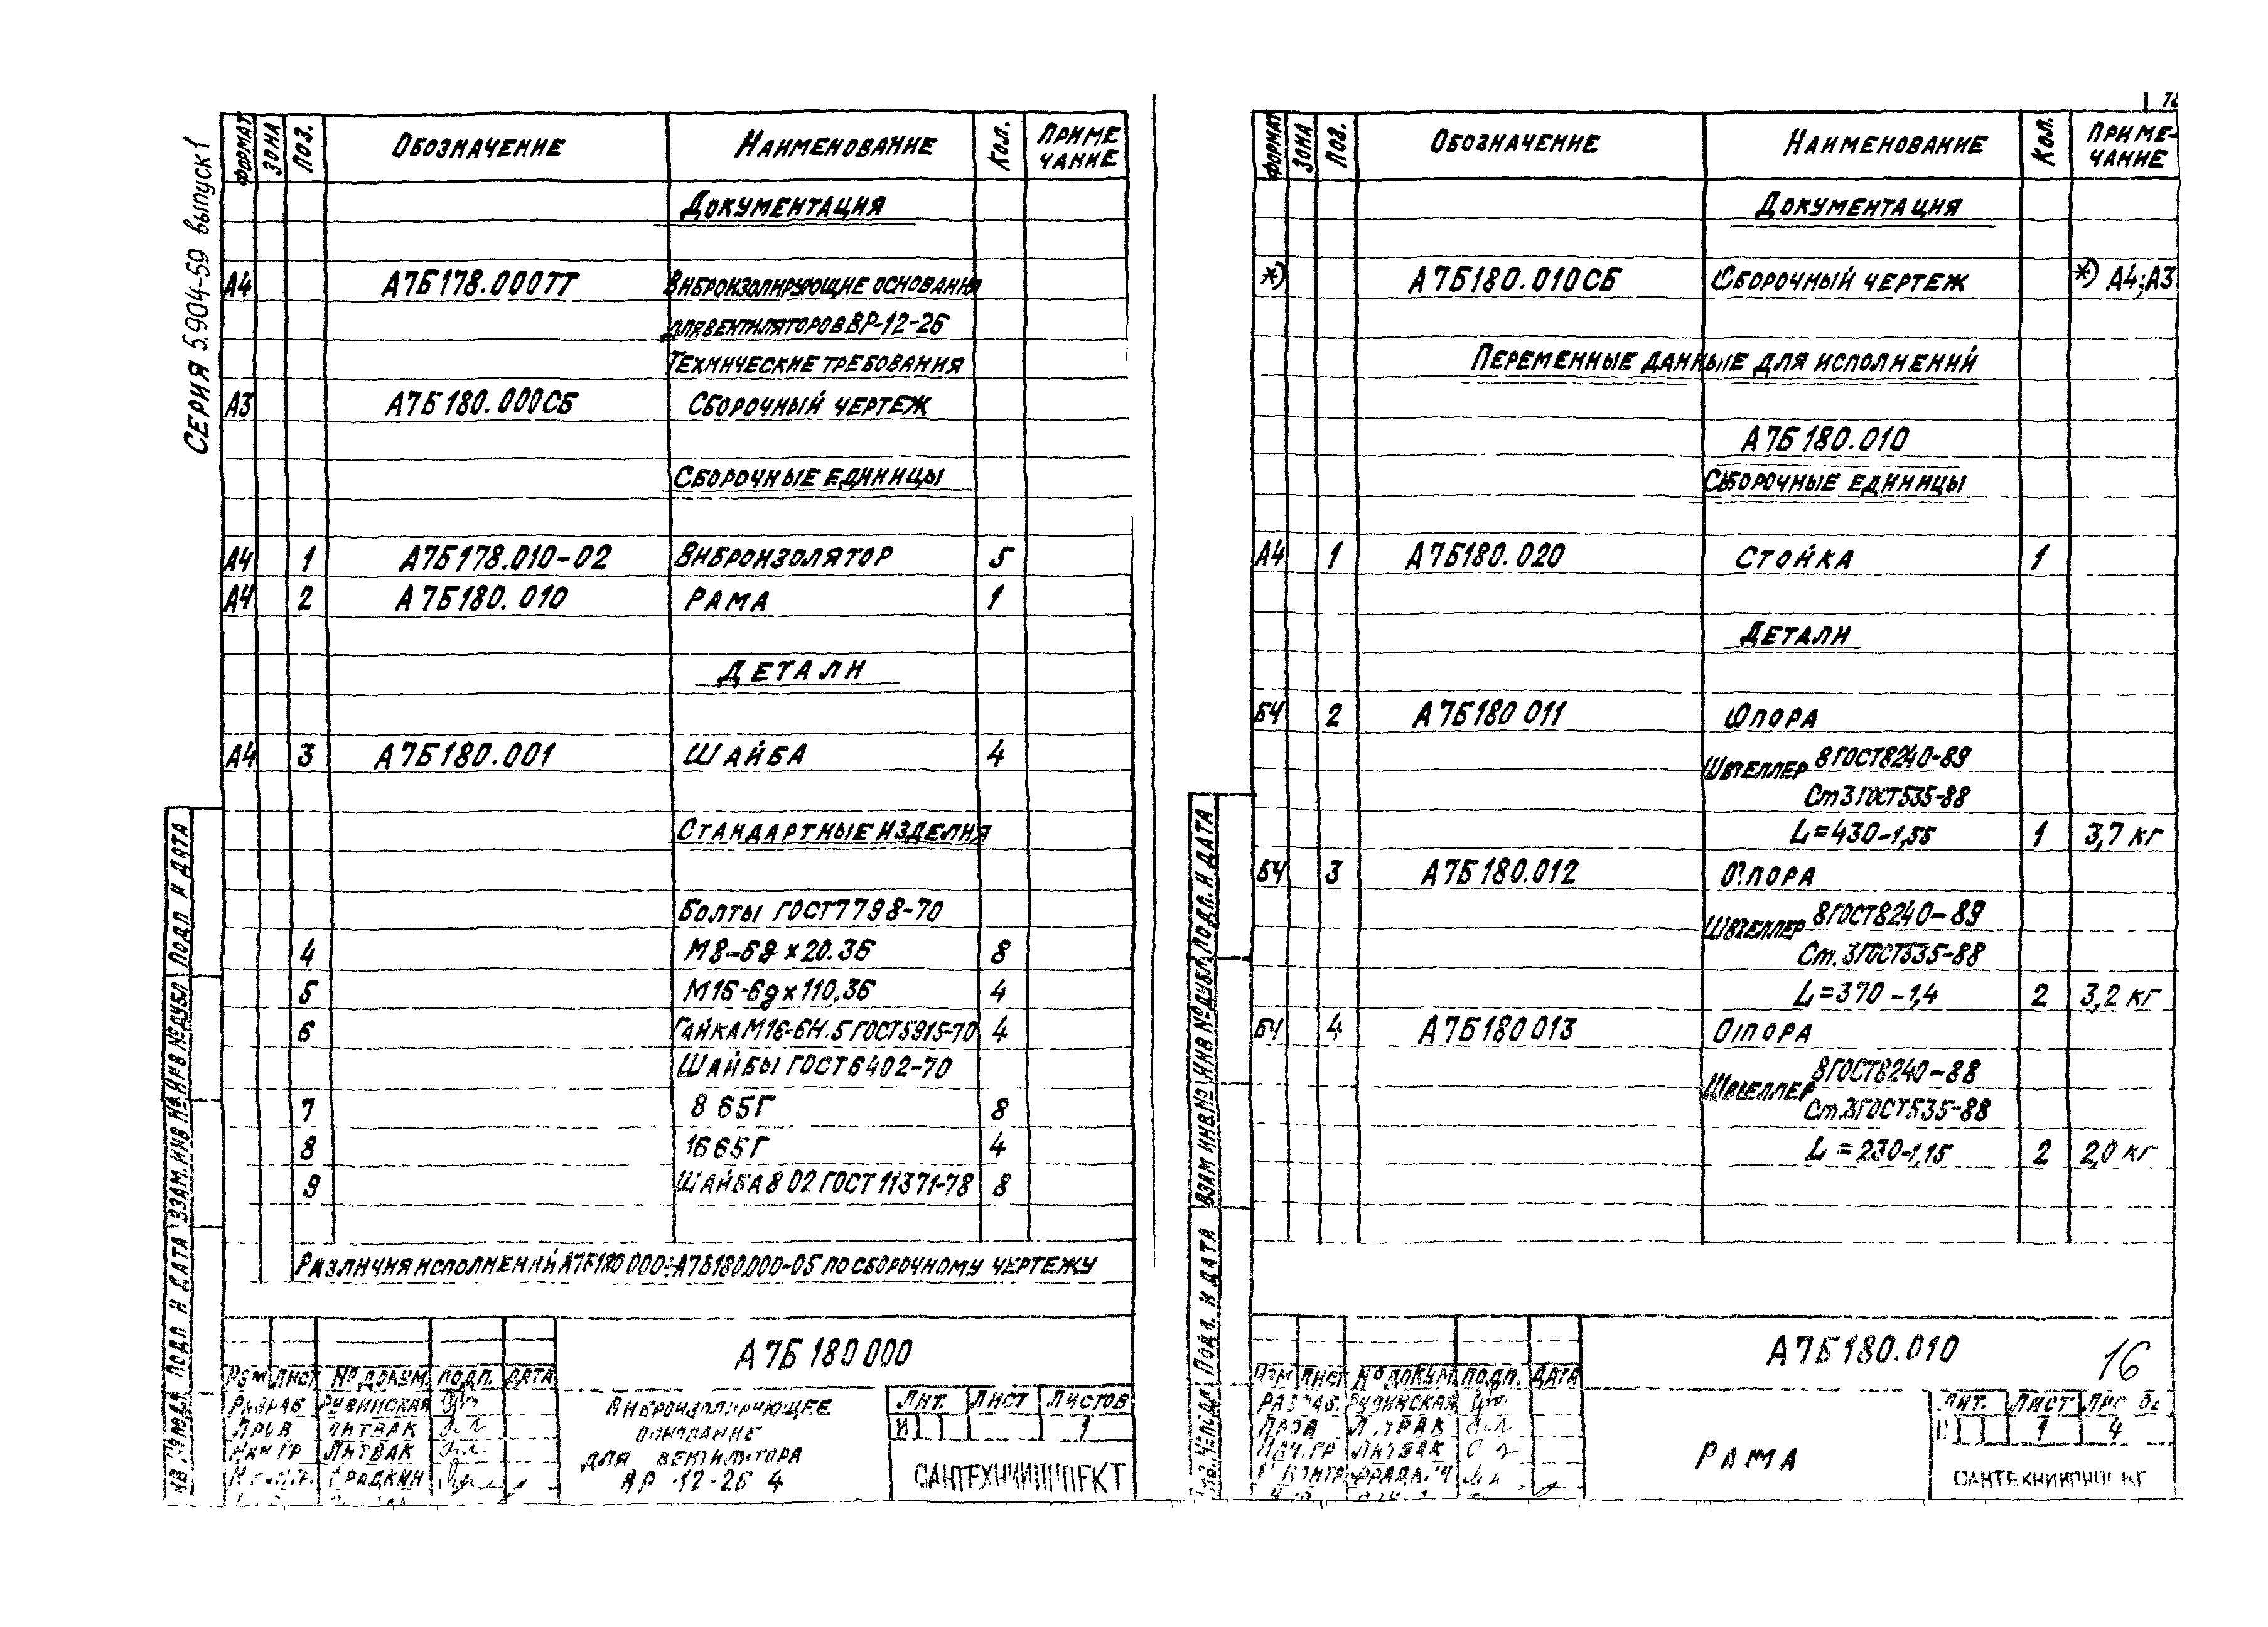 Серия 5.904-59 выпуск 1
Формат Зона Поз. Обозначение Наименование Кол. Приме
чание
Документация
А4 А7Б178.000ТТ Виброизолирующие основания
для вентиляторов ВР-12-26
Технические требования
А3 А7Б180.000СБ Сборочный чертеж
Сборочные единицы
А4 1 А7Б178.010-02 Виброизолятор 5
А4 2 А7Б180.010 Рама 1
Детали
А4 3 А7Б180.001 Шайба 4
Стандартные изделия
Болты ГОСТ 7798-70
4 М8-6g×20.36 8
5 М16-6g×110.36 4
6 Гайка М16-6Н.5 ГОСТ 5915-70 4
Шайбы ГОСТ 6402-70
7 8 65Г 8
8 16 65Г 4
9 Шайба 8 02 ГОСТ 11371-78 8
Различия исполнений А7Б180 000÷А7Б180.000-05 по сборочному чертежу
А7Б180 000
Изм Лист № докум. Подп. Дата
Разраб Рузинская
Пров Литвак
Нач гр Литвак
Н.контр. Фрадкин
Виброизолирующее
основание
для вентилятора
ВР-12-26 4
Лит. Лист Листов
И 1
САНТЕХНИИПРОЕКТ
Подп и дата
Инв № дубл
Взам. инв №
Подп и дата
Инв № подл
Формат Зона Поз. Обозначение Наименование Кол. Приме-
чание
Документация
*) А7Б180.010СБ Сборочный чертеж *) А4;А3
Переменные данные для исполнений
А7Б180.010
Сборочные единицы
А4 1 А7Б180.020 Стойка 1
Детали
БЧ 2 А7Б180 011 Опора
Швеллер 8 ГОСТ 8240-89
Ст3 ГОСТ 535-88
L=430-1,55 1 3,7 кг
БЧ 3 А7Б180.012 Опора
Швеллер 8 ГОСТ 8240-89
Ст.3 ГОСТ 535-88
L=370-1,4 2 3,2 кг
БЧ 4 А7Б180 013 Опора
Швеллер 8 ГОСТ 8240-88
Ст.3 ГОСТ 535-88
L=230-1,15 2 2,0 кг
А7Б180.010
16
Изм Лист № докум. Подп. Дата
Разраб. Рузинская
Пров Литвак
Нач.гр Литвак
Н контр Фрадкин
Рама
Лит. Лист Листов
И 1 4
САНТЕХНИИПРОЕКТ
Подп. и дата
Инв № дубл
Взам инв №
Подп. и дата
Инв. № подл